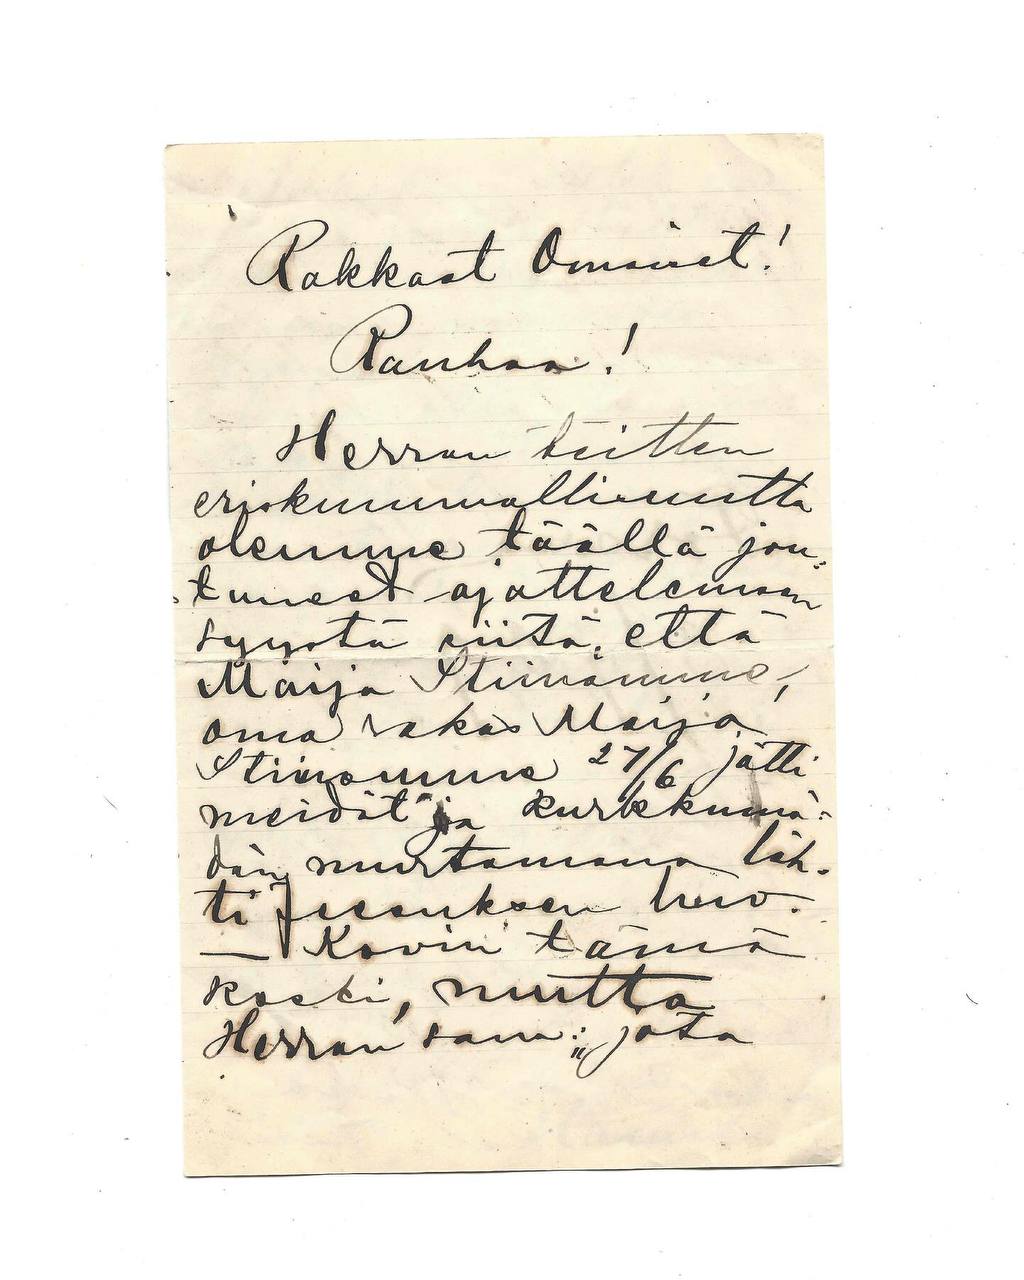 Rakkaat Omaiset!
Rauhaa!
Herran töitten
eriskummallisuutta
olemme täällä jou-
tuneet ajattelemaan
syystä siitä, että
Maija Stiinamme,
oma rakas Maija
Stiinamme 27/6 jätti
meidät ja kurkkumä-
dän murtamana läh-
ti Jeesuksen luo.
— Kovin tämä
koski, mutta
Herran sana: „jota